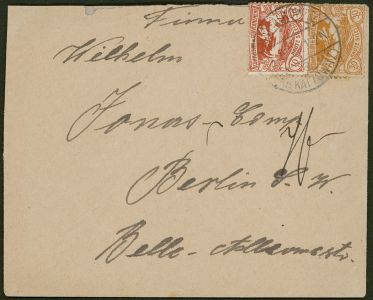 Firma
Wilhelm
Jonas-Comp
Berlin S. W.
Belle-Alliancestr.
KATTOWITZ